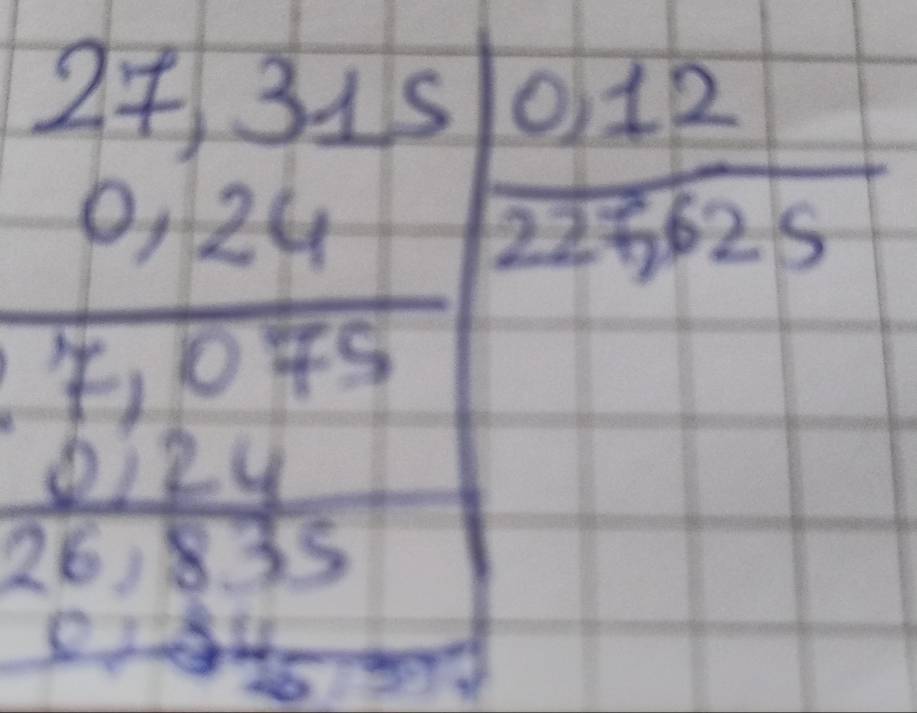 27,315 0,12
0,24 227,625
7,075
0,24
26,835